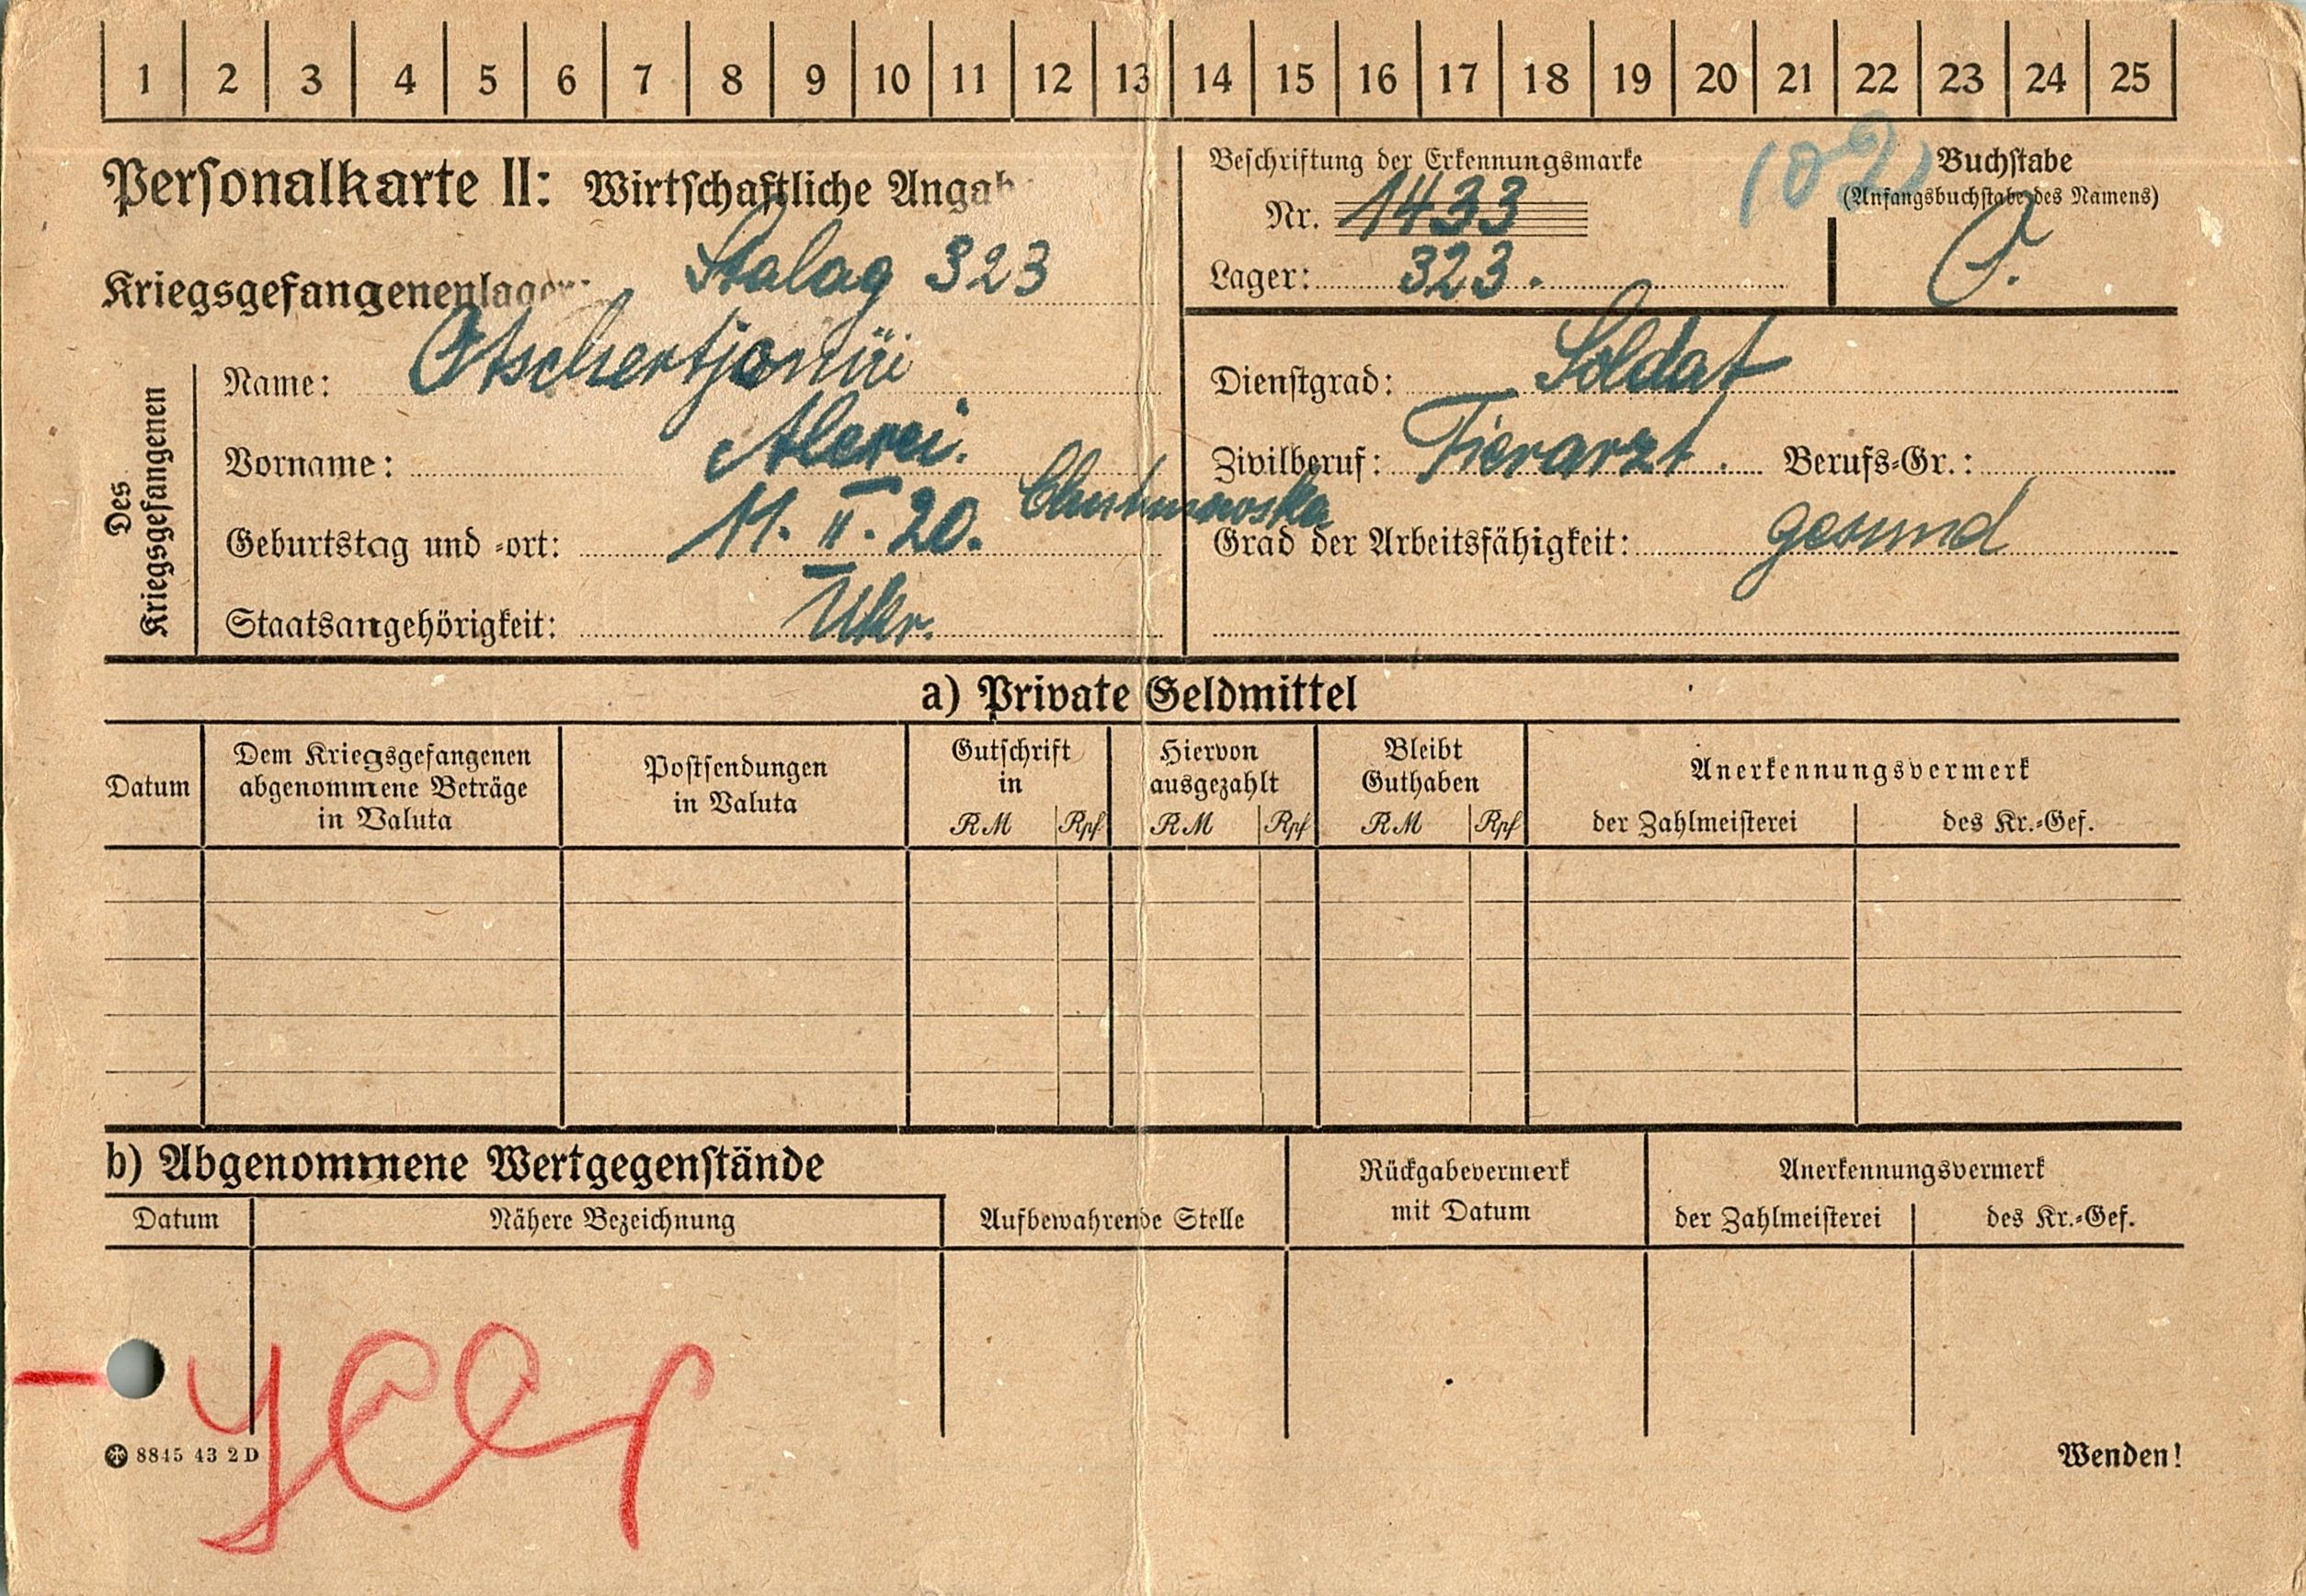 1 2 3 4 5 6 7 8 9 10 11 12 13 14 15 16 17 18 19 20 21 22 23 24 25
Personalkarte II: Wirtschaftliche Angab
Kriegsgefangenenlager: Stalag 323
Des Kriegsgefangenen
Name: Otschertjanüi
Vorname: Alexei.
Geburtstag und -ort: 11. II. 20.
Staatsangehörigkeit: Ukr.
Beschriftung der Erkennungsmarke
Nr. 1433
Lager: 323.
Buchstabe
(Anfangsbuchstabe des Namens)
O.
Dienstgrad: Soldat
Zivilberuf: Tierarzt. Berufs-Gr.:
Grad der Arbeitsfähigkeit: gesund
a) Private Geldmittel
Datum
Dem Kriegsgefangenen
abgenommene Beträge
in Valuta
Postsendungen
in Valuta
Gutschrift
in
RM Rpf
Hiervon
ausgezahlt
RM Rpf
Bleibt
Guthaben
RM Rpf
Anerkennungsvermerk
der Zahlmeisterei des Kr.-Gef.
b) Abgenommene Wertgegenstände
Datum Nähere Bezeichnung
Aufbewahrende Stelle
Rückgabevermerk
mit Datum
Anerkennungsvermerk
der Zahlmeisterei des Kr.-Gef.
8845 43 2 D
Wenden!